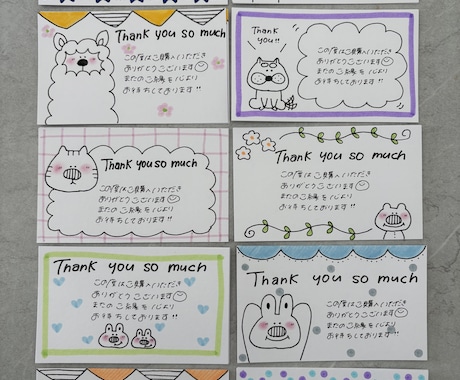 Thank you so much
この度はご購入いただき
ありがとうございます
またのご縁を心より
お待ちしております!!
Thank
you!!
この度はご購入いただき
ありがとうございます
またのご縁を心より
お待ちしております!!
Thank you so much
この度はご購入いただき
ありがとうございます
またのご縁を心より
お待ちしております!!
Thank you so much
この度はご購入いただき
ありがとうございます
またのご縁を心より
お待ちしております!!
Thank you so much
この度はご購入いただき
ありがとうございます
またのご縁を心より
お待ちしております!!
Thank you so much
この度はご購入いただき
ありがとうございます
またのご縁を心より
お待ちしております!!